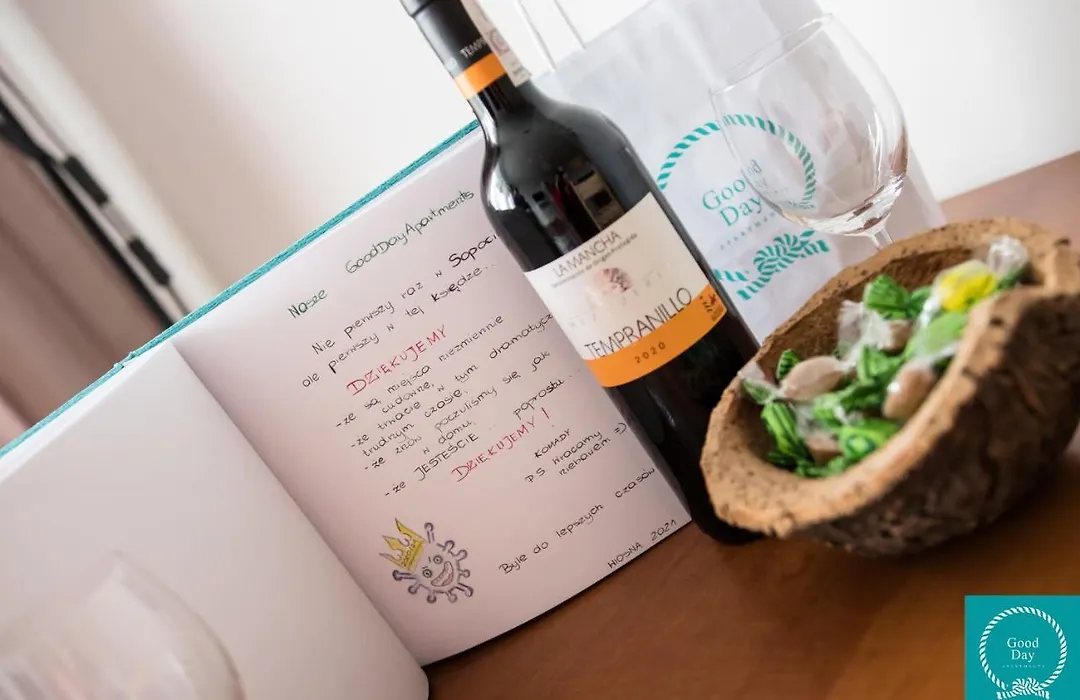 Nasze GoodDayApartments
Nie pierwszy raz w Sopoci
ale pierwszy w tej księdze...
DZIĘKUJEMY
-że są miejsca niezmiennie
cudowne,
-że trwacie w tym dramatycz
trudnym czasie,
-że znów poczuliśmy się jak
w domu,
-że JESTEŚCIE .. poprostu...
DZIĘKUJEMY!
KOMADY
P.S. Wracamy
niebawem =)
Byle do lepszych czasów
WIOSNA 2021
TEMP
LA MANCHA
TEMPRANILLO
2020
Good
Day
APARTMENTS
Good
Day
APARTMENTS